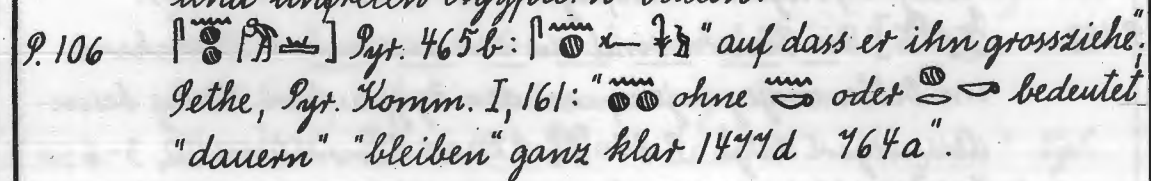 P. 106 [𓋴𓈖𓐍 ] Pyr. 465b: [𓋴𓈖𓐍 𓆑 "auf dass er ihn grossziehe";
Sethe, Pyr. Komm. I, 161: "𓈖𓐍𓐍 ohne 𓈖𓎡 oder 𓐍𓂋𓎡 bedeutet
"dauern" "bleiben" ganz klar 1477d 764a".